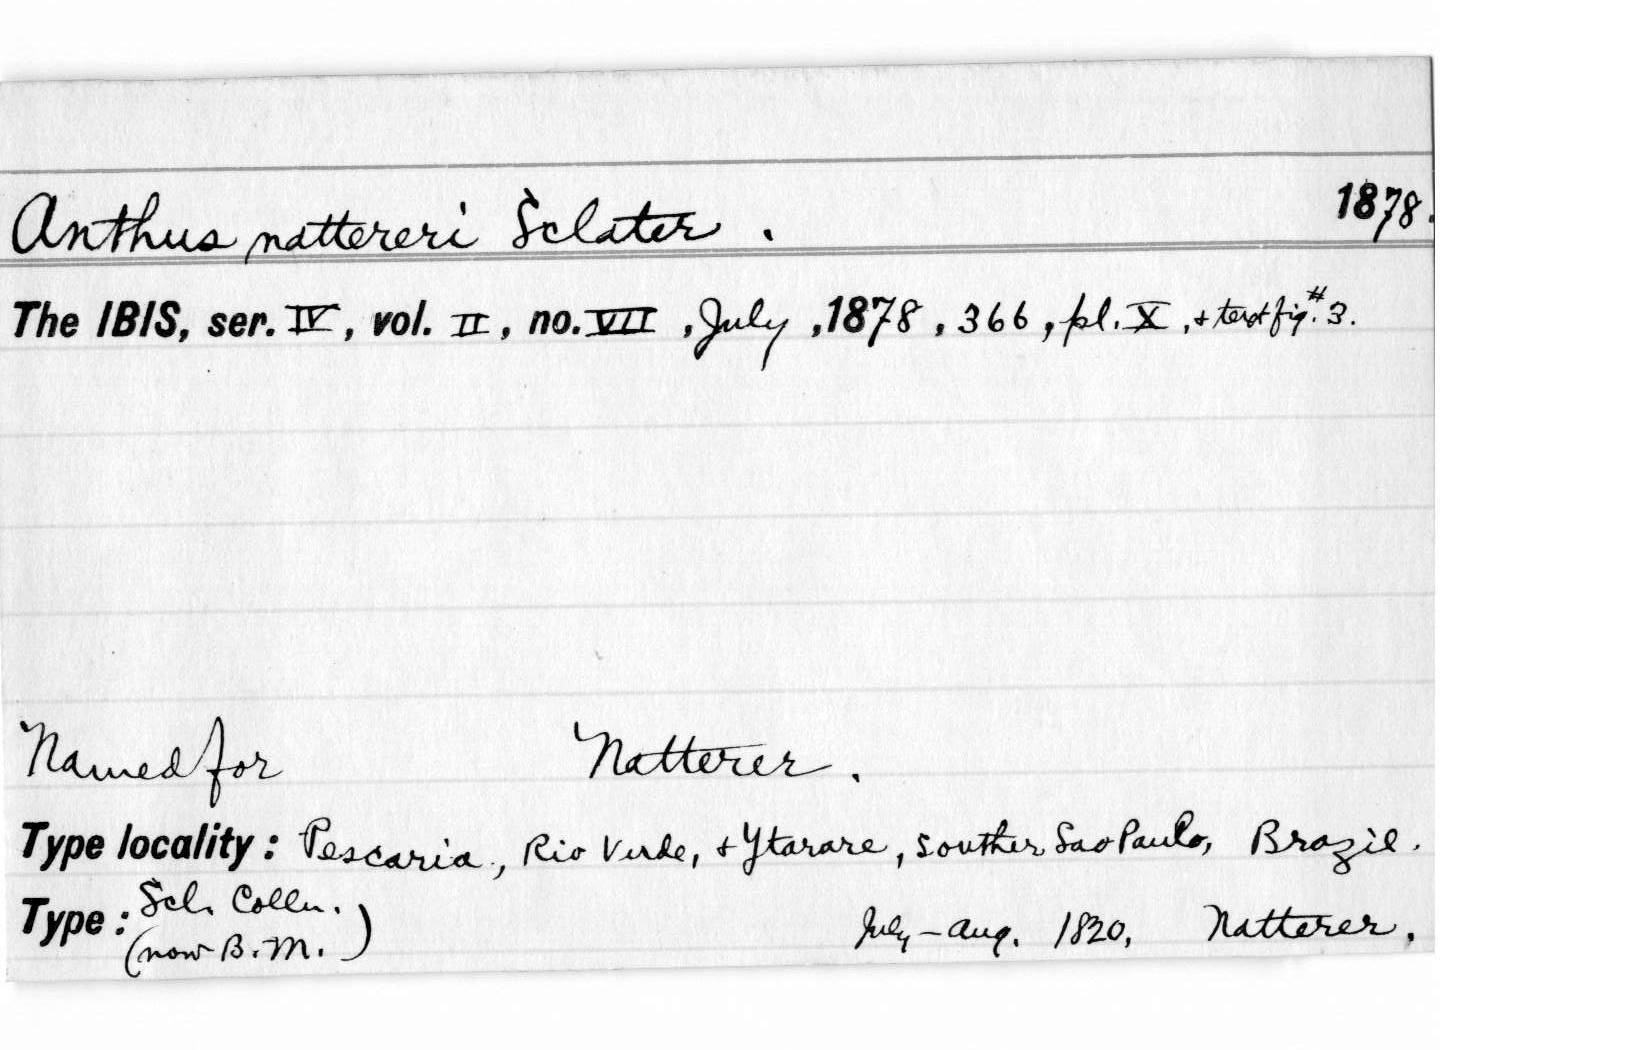 Anthus nattereri Sclater. 1878.
The IBIS, ser. IV, vol. II, no. VII, July, 1878, 366, pl. X, + text fig. #3.
Named for Natterer.
Type locality: Pescaria, Rio Verde, + Ytarare, southern Sao Paulo, Brazil.
Type: Scl. Colln.
(now B.M.) July-Aug. 1820, Natterer.